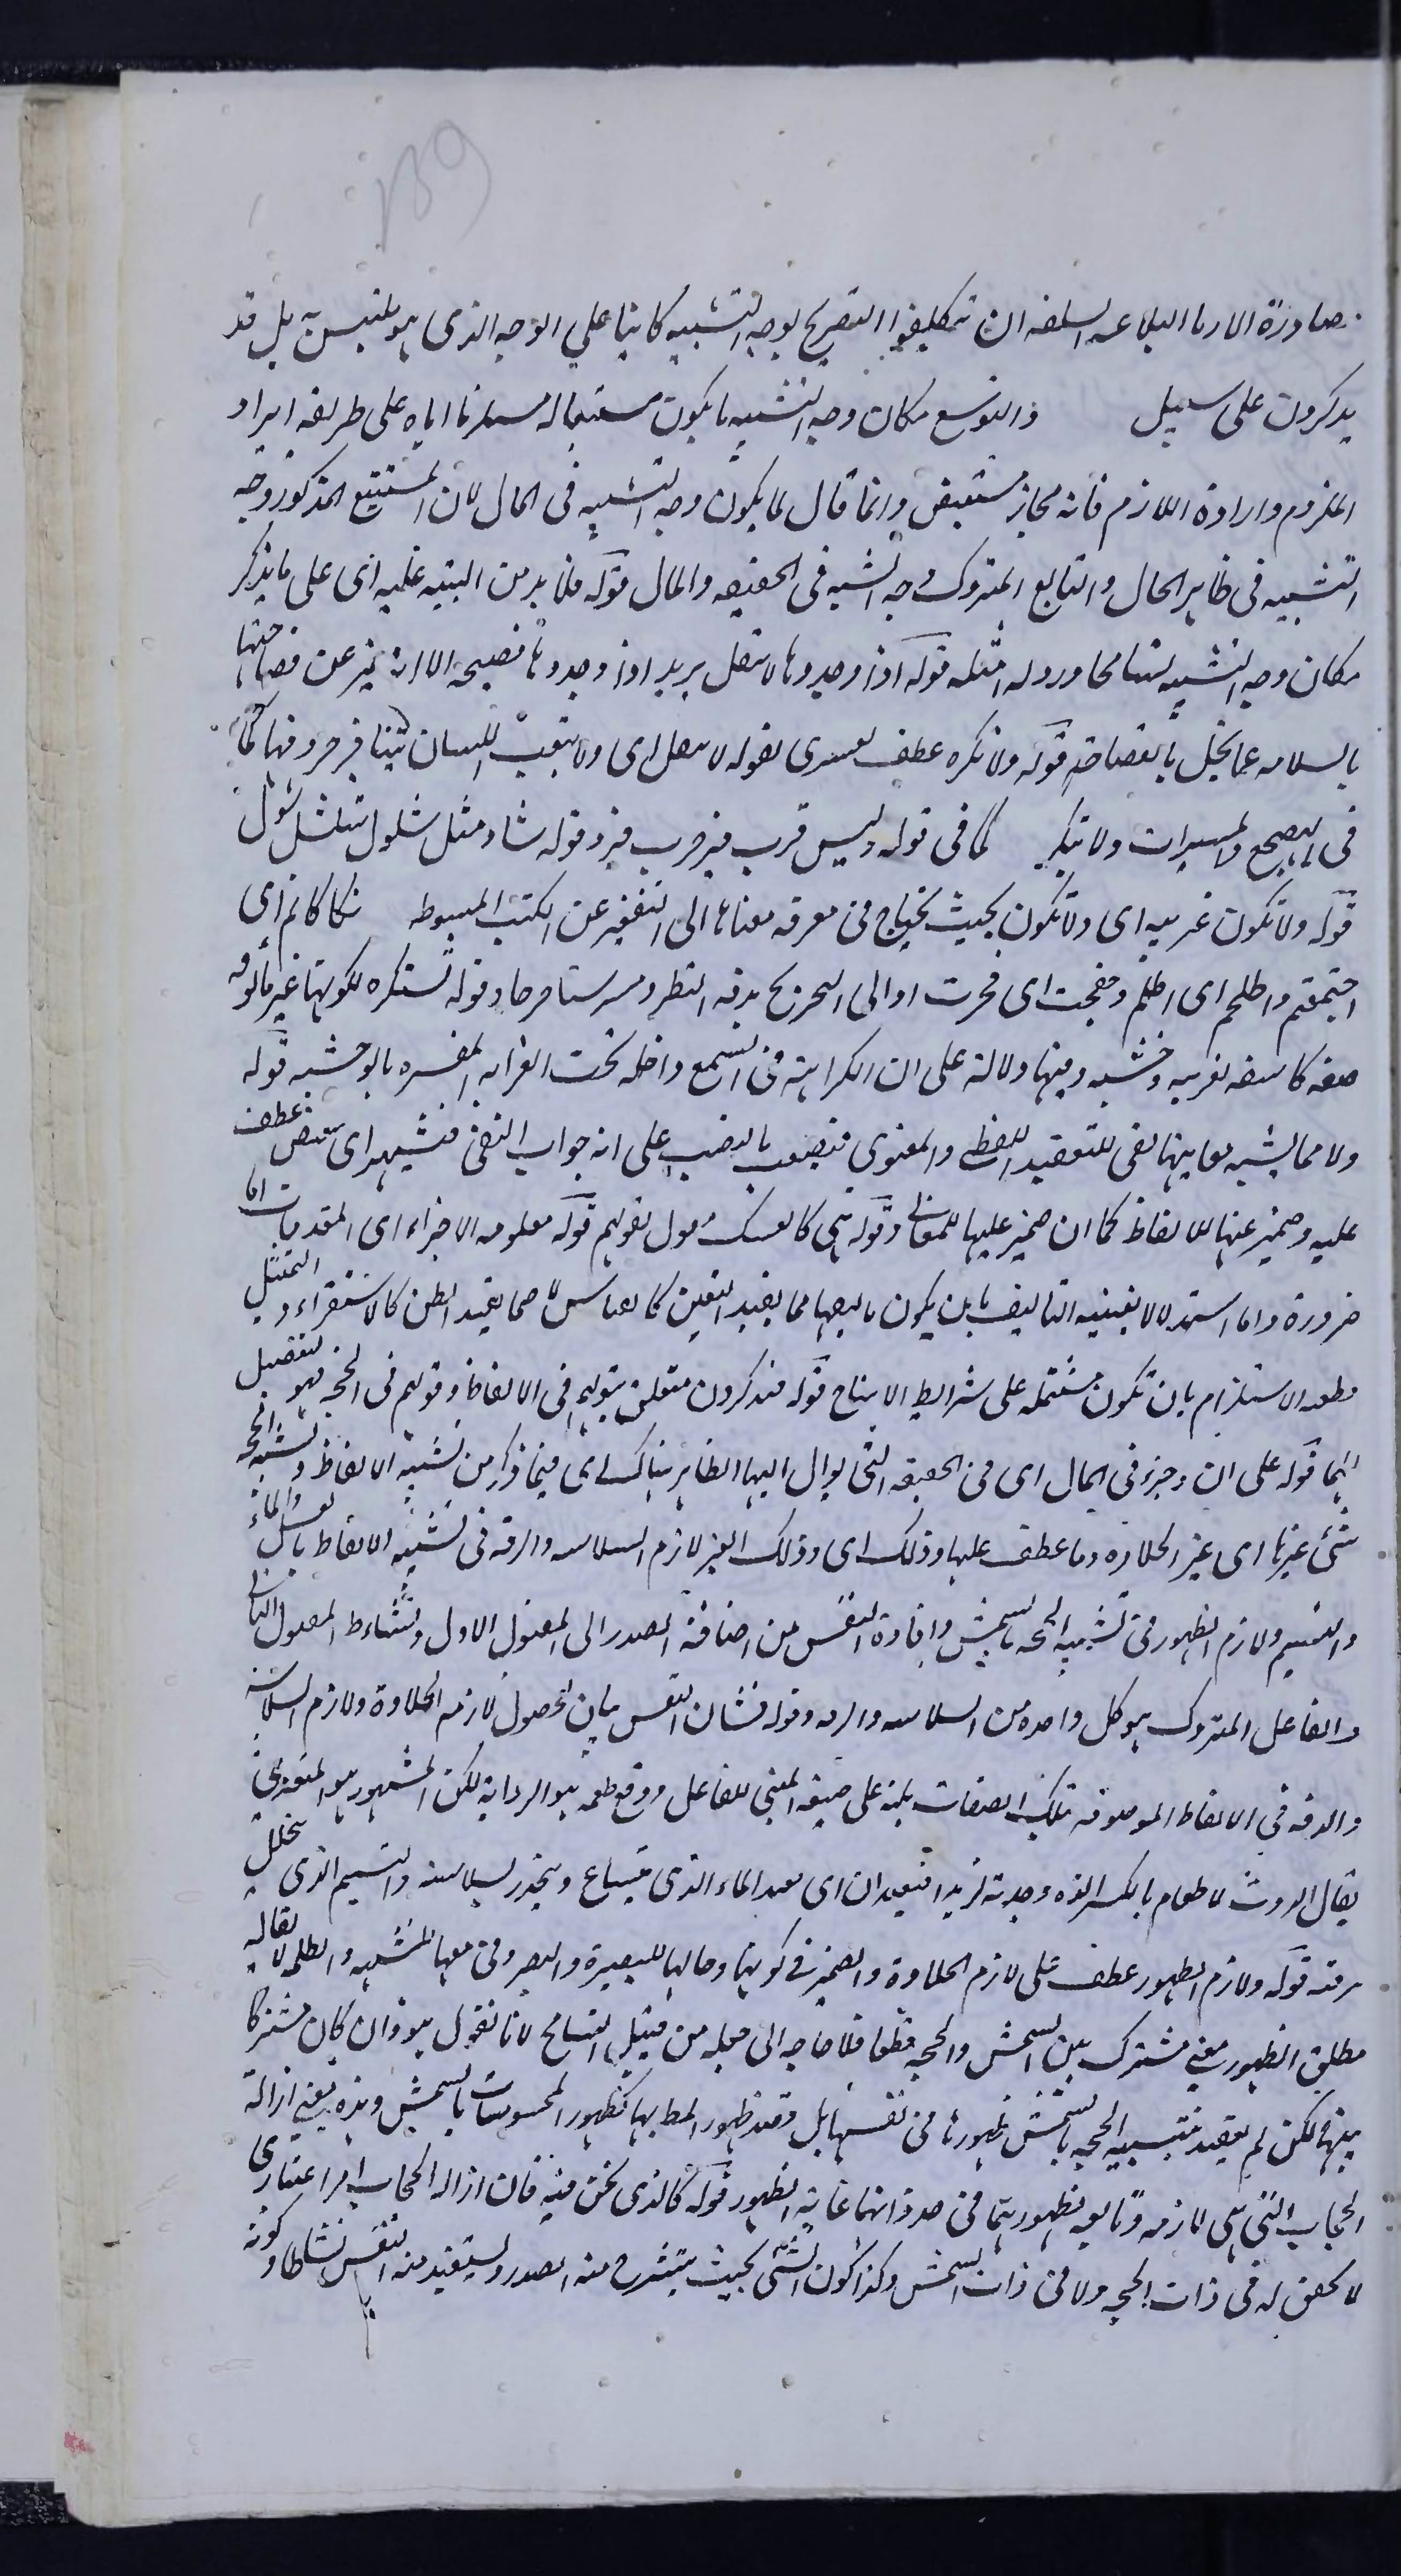 139
صادرة الاربا البلاعه السلفه ان يتكلفوا التصريح بوجه التشبيه كاينا على الوجه الذى هو ملتبس به بل قد
يذكرون على سبيل والتوسع مكان وجه التشبيه ما يكون مستلزما اياه على طريقه ايراد
الملزوم وارادة اللازم فانه مجاز مستفيض وانما قال لما يكون وجه التشبيه فى المال لان المستتبع المذكور وجه
التشبيه فى ظاهر الحال والتابع المتروك وجه التشبيه فى الحقيقه والمال قوله فلا بد من التنبيه عليه اى على ما يذكر
مكان وجه التشبيه تسامحا ورود له امثله قوله اذا وجدوها لا تثقل يريد اذا وجدوها فصيحة الا انه عبر عن فصاحتها
بالسلامه عما يخل بالفصاحة قوله ولا تكره عطف تفسيرى لقوله لا تثقل اى ولا يتعب اللسان بتنافر حروفها كما
فى الهعخع والمستشزرات ولا بتكرير كما فى قوله وليس قرب قبر حرب قبر وقوله شاو مشل شلول شلشل شول
قوله ولا تكون غريبه اى ولا تكون بحيث يحتاج فى معرفه معناها الى التنقير عن الكتب المبسوطه تكاكاتم اى
اجتمعتم واطلخم اى اظلم وجفخت اى فخرت او الى التخريج بدقه النظر ومرسنا مسرجا وقوله تستكره لكونها غير مالوفه
صفه كاشفه لغريبه وحشيه وفيها دلالة على ان الكراهة فى السمع داخله تحت الغرابه المفسره بالوحشيه قوله
ولا مما يشتبه معانيها نفى للتعقيد اللفظى والمعنوى فتصعب بالنصب على انه جواب النفى فتشتهر اى عطف
عليه وضمير عنها للالفاظ كما ان ضمير عليها للمعانى وقوله هى كالعسل مقول لقولهم قوله معلومه الاجزاء اى المقدمات اما
ضرورة واما استدلالا يقينيه التاليف بان يكون تاليفها مما يفيد اليقين كالقياس لا مما يفيد الظن كالاستقراء والتمثيل
قطعيه الاستلزام بان تكون مشتمله على شرائط الانتاج قوله فيذكرون متعلق بقولهم فى الالفاظ وقولهم فى الحجه فهو تفصيل
لهما قوله على ان وجزء فى المال اى فى الحقيقه التى يوال اليها الظاهر هناك اى فيما ذكر من تشبيه الالفاظ وتشبيه الحجه
شئ غيرها اى غير الحلاوه وما عطف عليها وذلك اى وذلك الغير لازم السلاسه والرقه فى تشبيه الالفاظ بالعسل والماء
والنسيم ولازم الظهور فى تشبيه الحجه بالشمس وافادة النفس من اضافة المصدر الى المفعول الاول ونشاط المفعول الثانى
والفاعل المتروك هو كل واحده من السلاسه والرقه وقوله فشان النفس بيان لحصول لازم الحلاوة ولازم السلاسة
والرقه فى الالفاظ الموصوفه بتلك الصفات يلذ على صيغه المبنى للفاعل ورفع طعمه هو الرواية لكن المشهور هو المتعدى
يقال لذذت الطعام بالكسر الذه وجدته لذيذا اى بعد الماء الذى ينساغ وينحدر لسلاسته والنسيم الذى يتخلل
لرقته قوله ولازم الظهور عطف على لازم الحلاوة والضمير فى كونها وحالها للبصيرة والبصر وفى معها للشبهه والظلمه لا يقال
مطلق الظهور معنى مشترك بين الشمس والحجه قطعا فلا حاجه الى جعله من قبيل التسامح لانا نقول هو وان كان مشتركا
بينهما لكن لم يقصد بتشبيه الحجه بالشمس ظهورها فى نفسها بل قصد ظهور المط بها كظهور المحسوسات بالشمس وهذه يعنى ازالة
الحجاب التى هى لازمه وتابعه لظهورهما فى حد ذاتهما غاية الظهور قوله كالذى نحن فيه فان ازاله الحجاب امر اعتبارى
لا تحقق له فى ذات الحجه ولا فى ذات الشمس وكذا كون الشئ بحيث ينشرح منه الصدر ويستفيد منه النفس نشاطا وكونه